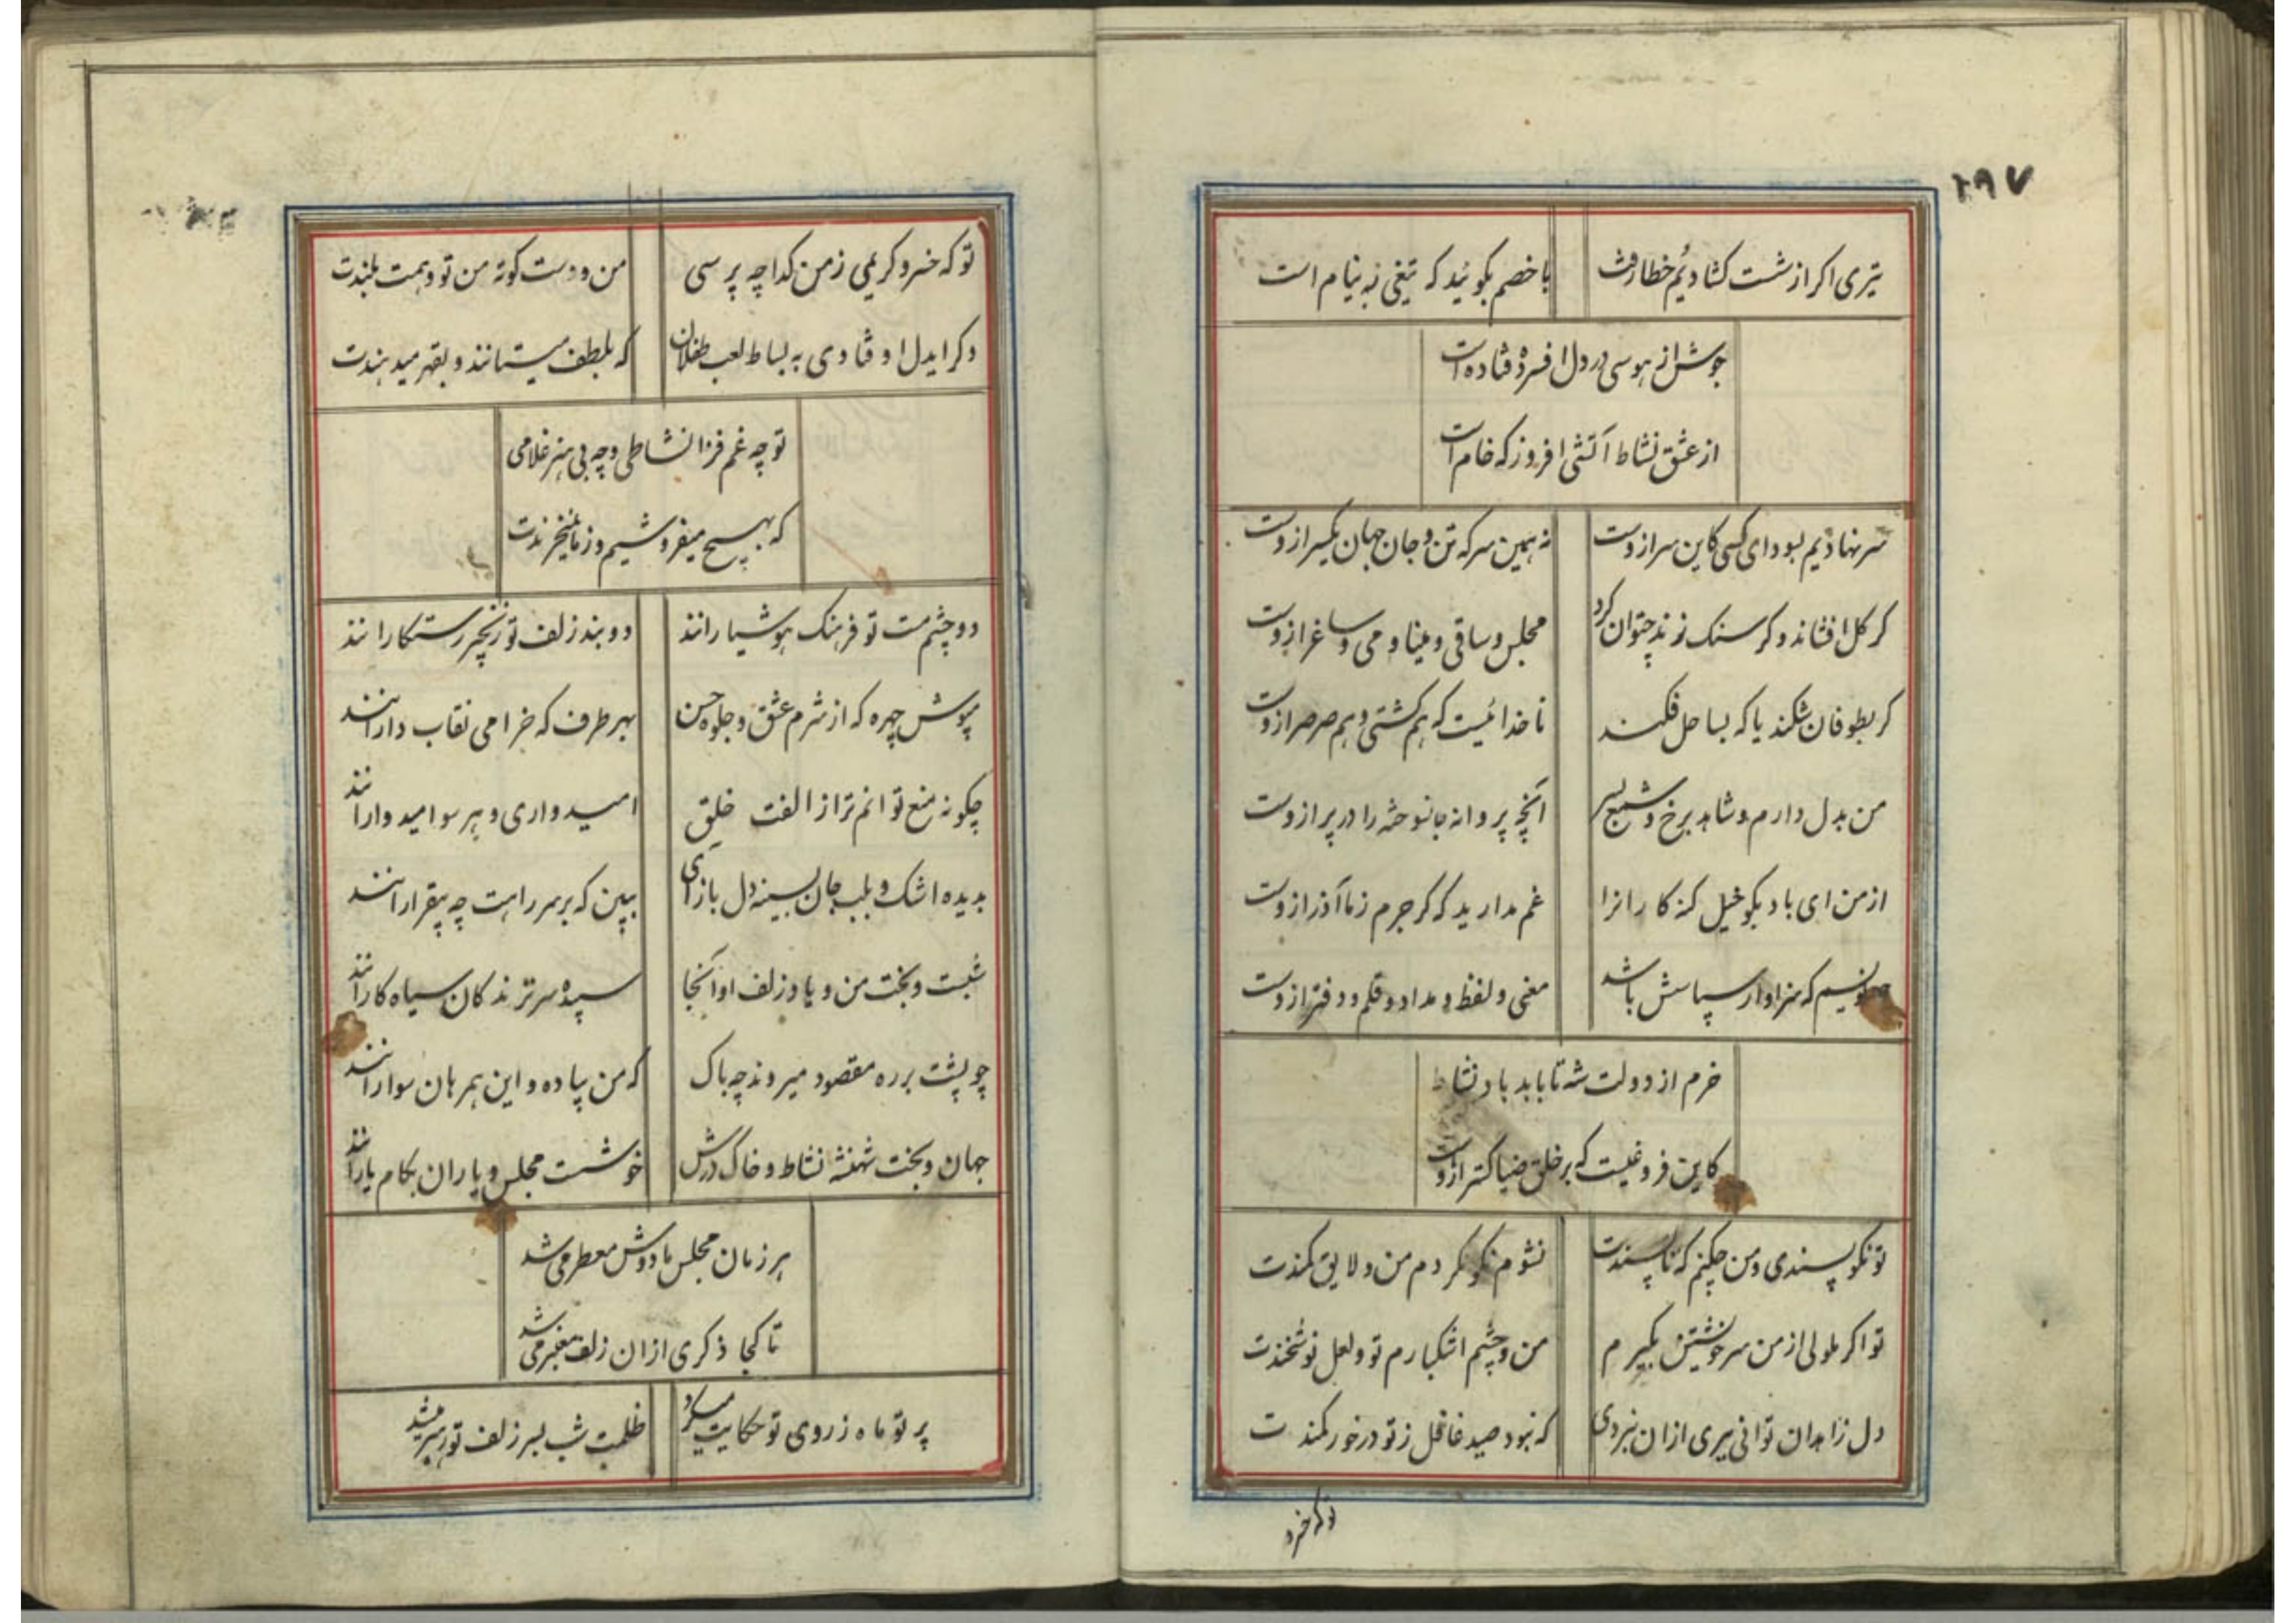 ۱۹۷
تیری اکر از شست کشادیم خطا رفت
با خصم بکوئید که تیغی به نیام است
جوش از هوسی در دل افسرده فتاده است
از عشق نشاط آتشی افروز که خام است
سر نهادیم بسودای کسی کاین سر ازوست
نه همین سر که تن و جان جهان یکسر ازوست
کر کل افشاند و کر سنک زند چتوان کرد
مجلس و ساقی و مینا و می و ساغر ازوست
کر بطوفان شکند یا که بساحل فکند
ناخدائیست که هم کشتی و هم صرصر ازوست
من بدل دارم و شاهد برخ و شمع بسر
آنچه پروانه جانسوخته را در پر ازوست
از من ای باد بکو خیل کنه کارانرا
غم مدارید که کر جرم ز ما آذر ازوست
نویسم که سزاوار سپاسش باشد
معنی و لفظ و مداد و قلم و دفتر ازوست
خرم از دولت شه تا بابد باد نشاط
کاین فروغیست که بر خلق ضیا کستر ازوست
تو نکو پسندی و من چکنم که ناپسندت
نشوم نکو نکردم من و لایق کمندت
تو اکر ملولی از من سر خویشتن بکیرم
من و چشم اشکبارم تو و لعل نوشخندت
دل زاهدان توانی ببری ازان نبردی
که نبود صید غافل ز تو در خور کمندت
تو که خسرو
تو که خسرو کریمی ز من کدا چه پرسی
من و دست کوته من تو و همت بلندت
دکر ایدل اوفتادی به بساط لعب طفلان
که بلطف میستانند و بقهر میدهندت
تو چه غم فزا نشاطی و چه بی هنر غلامی
که بهیچ میفروشیم و ز ما نمیخرندت
دو چشم مست تو فرهنک هوشیارانند
دو بند زلف تو زنجیر رستکارانند
بپوش چهره که از شرم عشق و جلوه حسن
بهر طرف که خرامی نقاب دارانند
چکونه منع توانم ترا از الفت خلق
امیدواری و هر سو امیدوارانند
بدیده اشک و بلب جان بسینه دل باز آی
ببین که بر سر راهت چه بیقرارانند
شبست و بخت من و یاد زلف او آنجا
سپیده سر نزند کان سیاه کارانند
چو پشت بر ره مقصود میروند چه باک
که من پیاده و این همرهان سوارانند
جهان و بخت شهنشه نشاط و خاک درش
خوشست مجلس و یاران بکام یارانند
هر زمان مجلس ما دوش معطر می شد
تا کجا ذکری ازان زلف معنبر می شد
پرتو ماه ز روی تو حکایت میکرد
ظلمت شب بسر زلف تو رهبر میشد